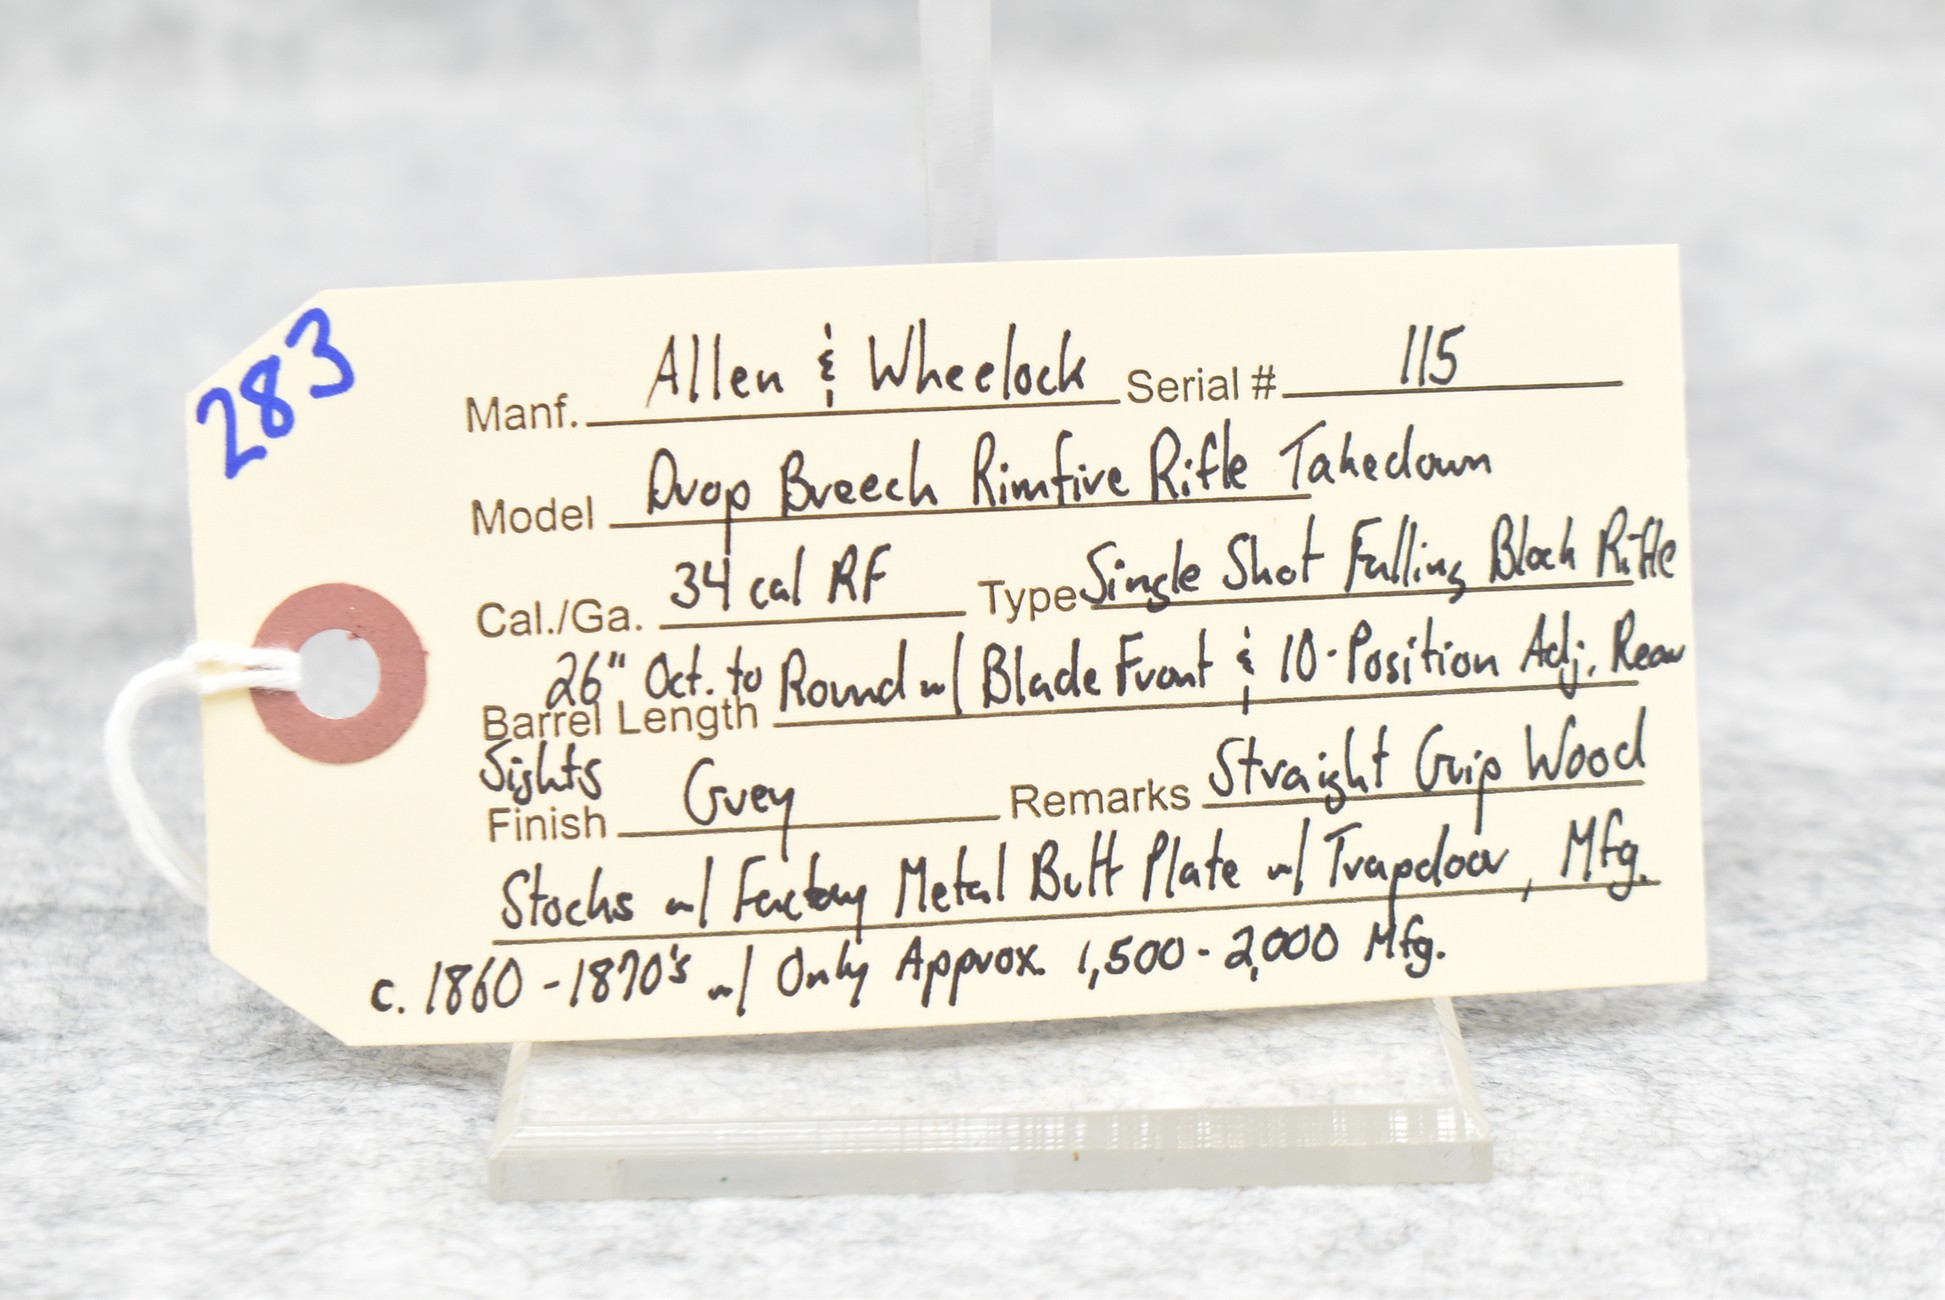 283
Manf. Allen & Wheelock Serial # 115
Model Drop Breech Rimfire Rifle Takedown
Cal./Ga. 34 cal RF Type Single Shot Falling Block Rifle
Barrel Length 26" Oct. to Round w/ Blade Front & 10-Position Adj. Rear
Sights
Finish Grey Remarks Straight Grip Wood
Stocks w/ Factory Metal Butt Plate w/ Trapdoor, Mfg.
c. 1860-1870's w/ Only Approx. 1,500-2,000 Mfg.